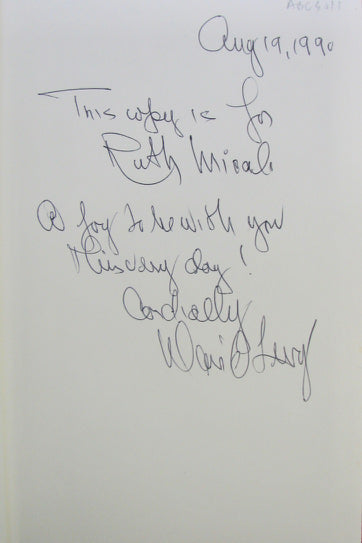 Aug 19, 1990
This copy is for
Ruth
A joy to be with you
this very day!
Cordially
Levy